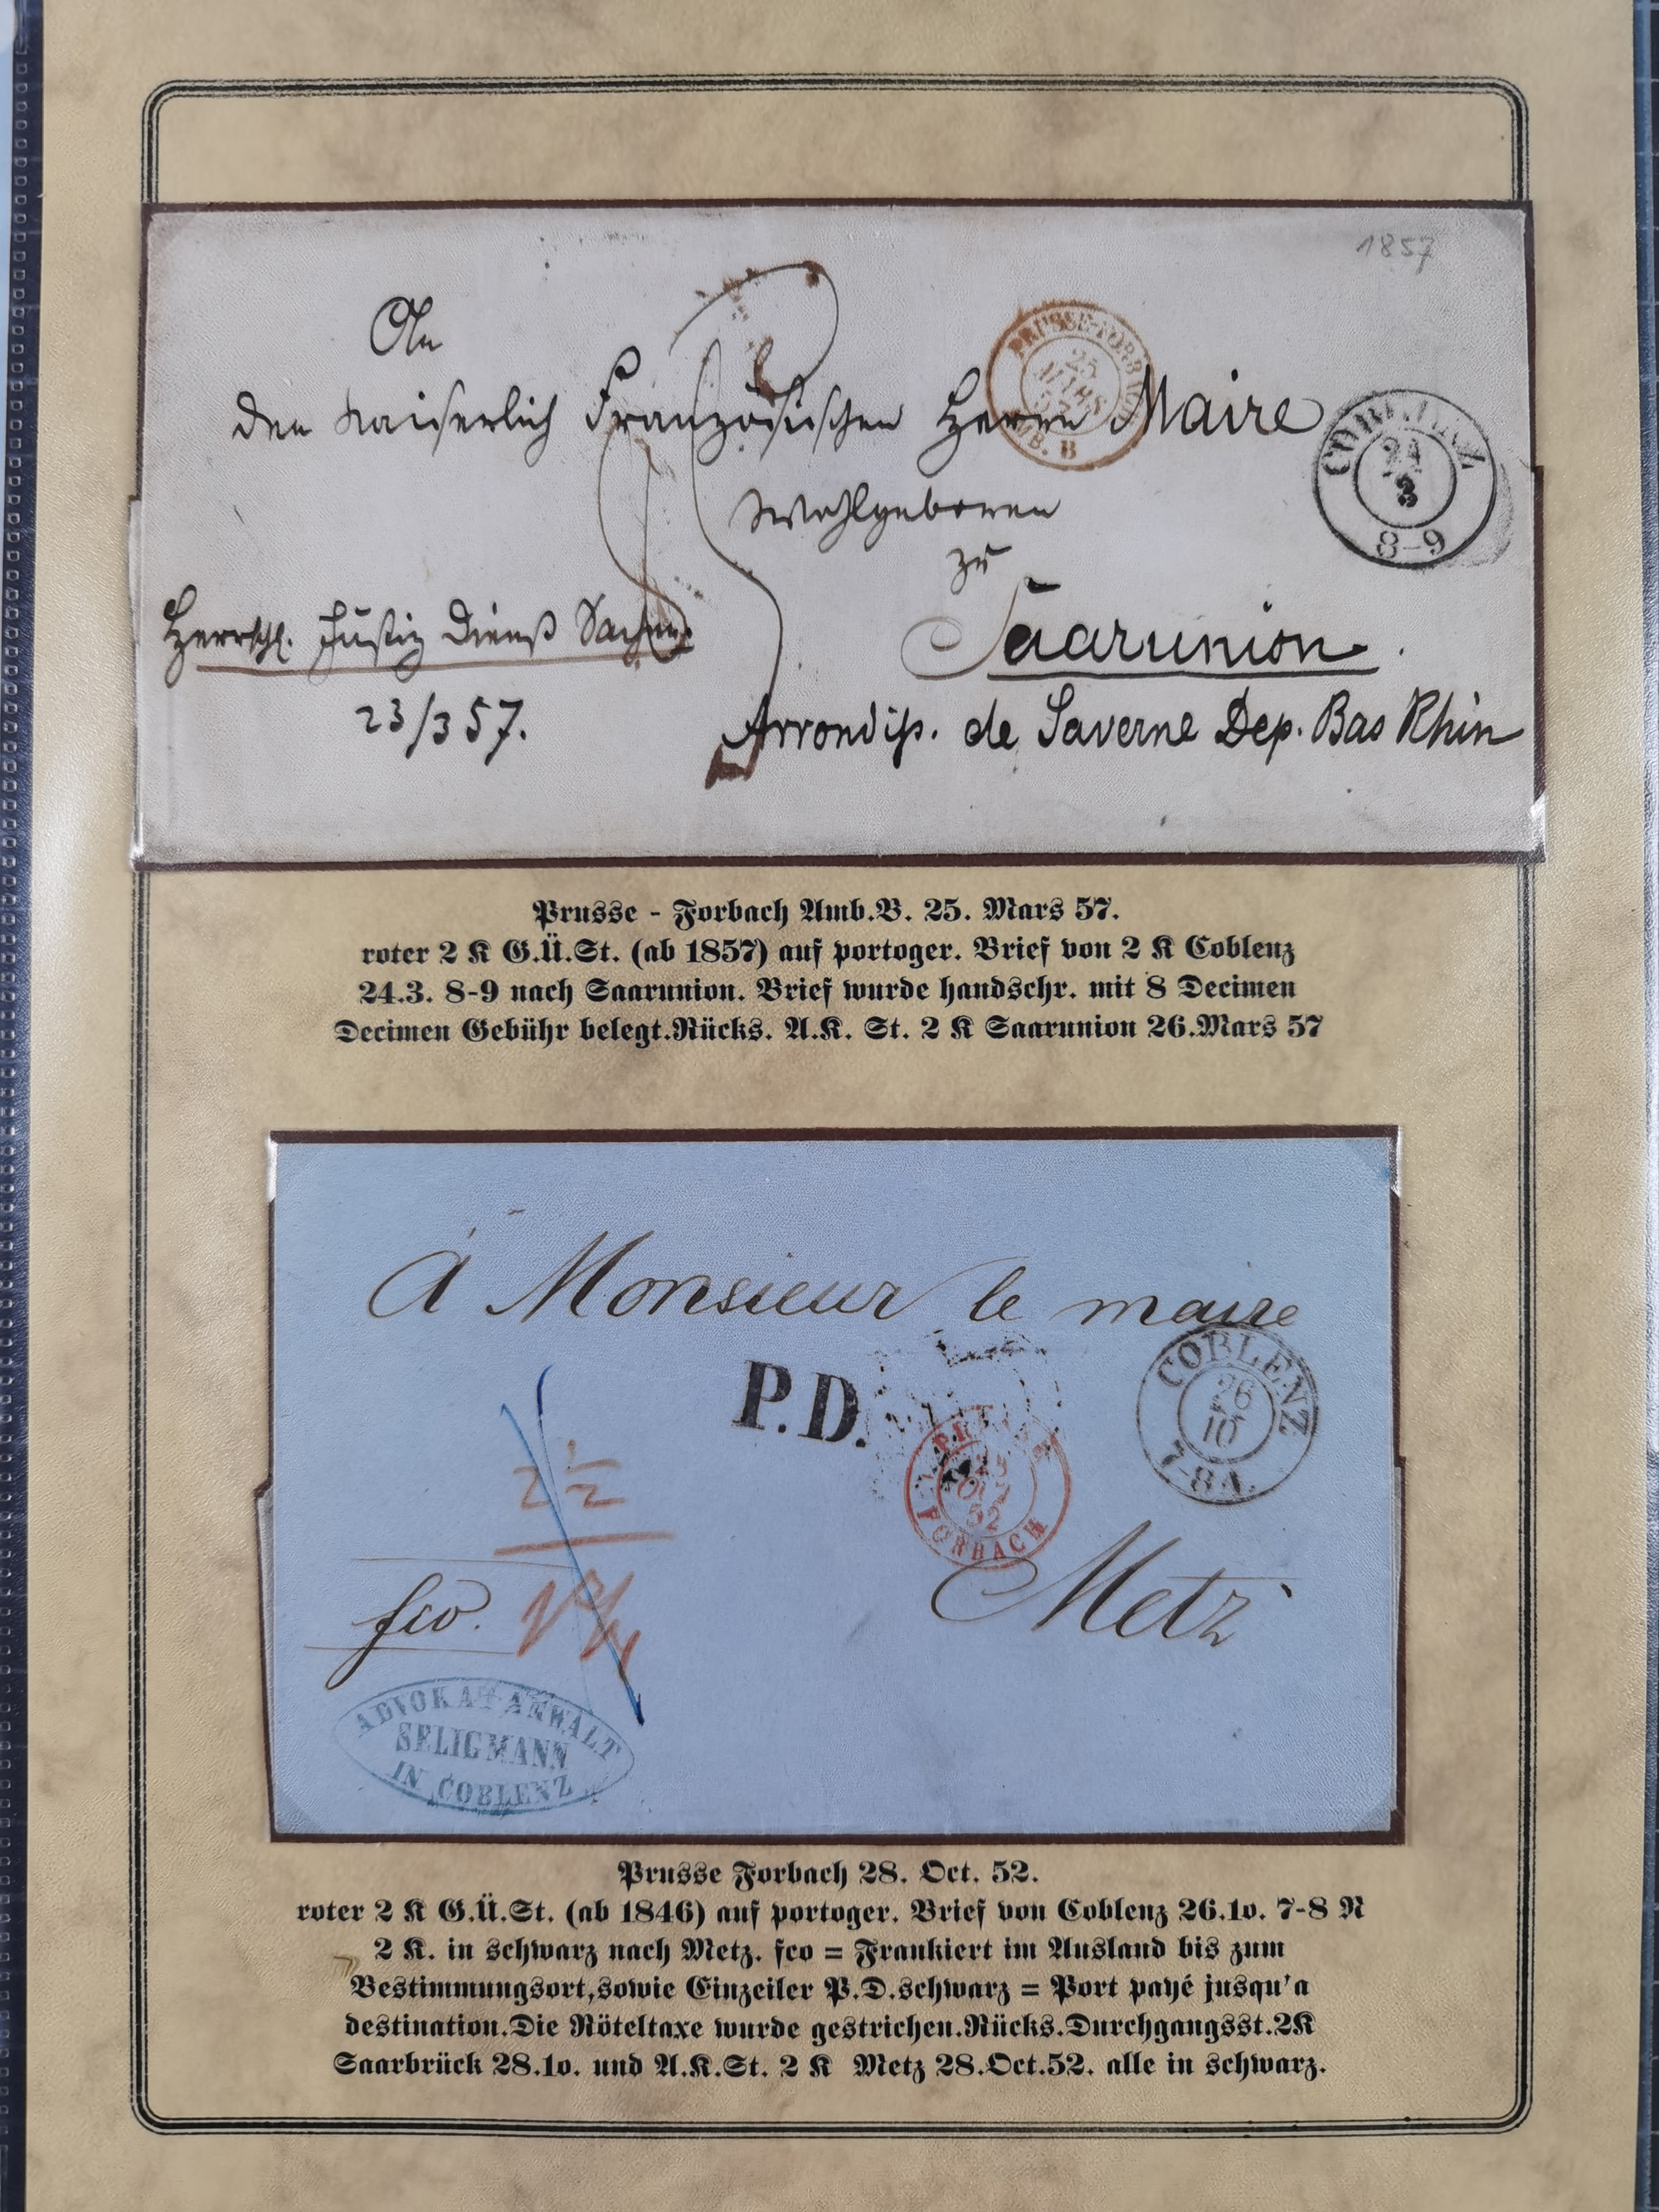 1857
An
den Kaiserlich Französischen Herrn Maire
PRUSSE-FORBACH
25
MARS
57
AMB. B
COBLENZ
24
3
8-9
Wohlgeboren
zu
Saarunion.
Herrschl. Justiz Dienst Sachen.
23/3 57.
Arrondiss. de Saverne Dep. Bas Rhin
8
Prusse - Forbach Amb.B. 25. Mars 57.
roter 2 K G.Ü.St. (ab 1857) auf portoger. Brief von 2 K Coblenz
24.3. 8-9 nach Saarunion. Brief wurde handschr. mit 8 Decimen
Decimen Gebühr belegt.Rücks. A.K. St. 2 K Saarunion 26.Mars 57
A Monsieur le maire
P.D.
COBLENZ
26
10
7-8 A.
28
OCT
52
FORBACH
2 1/2
fco.
Metz
ADVOKAT-ANWALT
SELIGMANN
IN COBLENZ
Prusse Forbach 28. Oct. 52.
roter 2 K G.Ü.St. (ab 1846) auf portoger. Brief von Coblenz 26.1o. 7-8 N
2 K. in schwarz nach Metz. fco = Frankiert im Ausland bis zum
Bestimmungsort,sowie Einzeiler P.D.schwarz = Port payé jusqu'a
destination.Die Röteltaxe wurde gestrichen.Rücks.Durchgangsst.2K
Saarbrück 28.1o. und A.K.St. 2 K Metz 28.Oct.52. alle in schwarz.